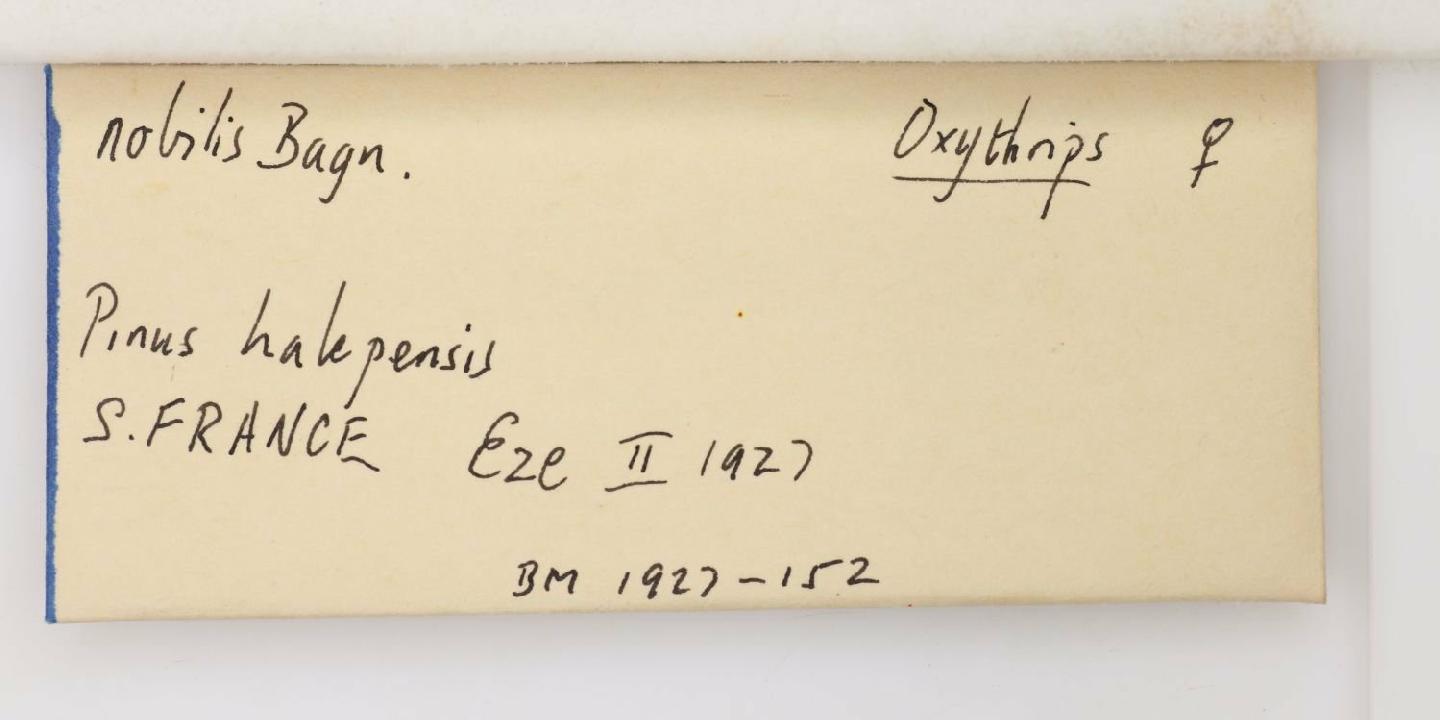 nobilis Bagn. Oxythrips ♀
Pinus halepensis
S. FRANCE Eze II 1927
BM 1927-152